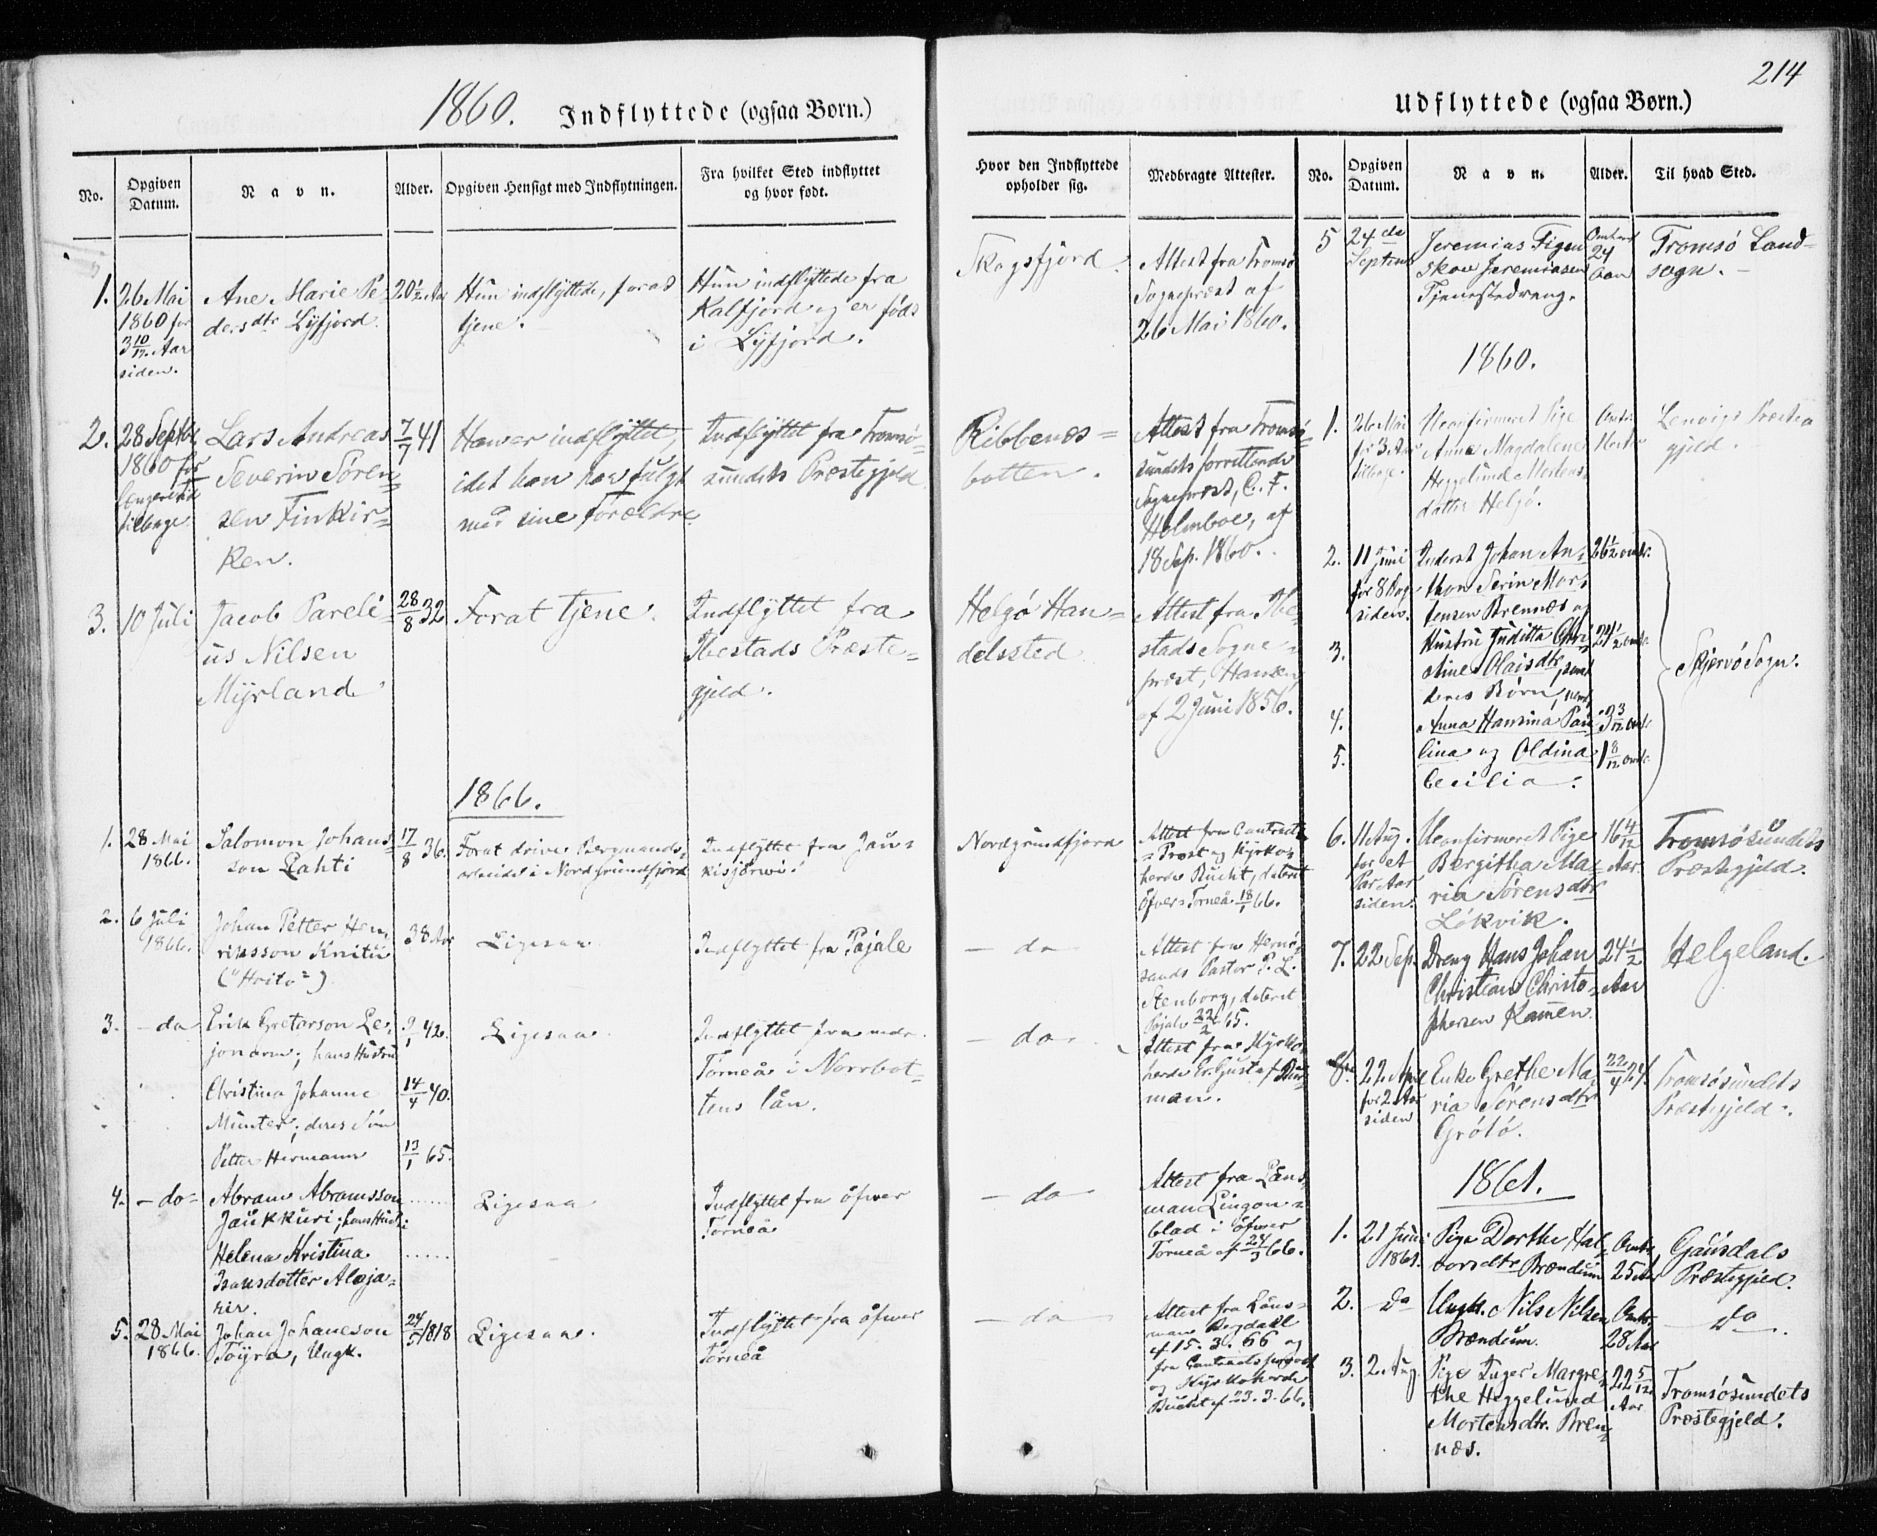 214
1860. Indflyttede (ogsaa Børn.)
No.
Opgiven
Datum.
Navn.
Alder.
Opgiven Hensigt med Indflytningen.
Fra hvilket Sted indflyttet
og hvor født.
Hvor den Indflyttede
opholder sig.
Medbragte Attester.
1.
26 Mai
1860 for
3 10/12 Aar
siden.
Ane Marie Pe-
dersdtr Lyfjord.
20 1/2 Aar
Hun indflyttede, forat
tjene.
Hun indflyttede fra
Kalfjord og er født
i Lyfjord.
Skogsfjord.
Attest fra Tromsø
Sognepræst af
26 Mai 1860.
2.
28 Septbr
1860 for
længere Tid
tilbage.
Lars Andreas
Severin Søren-
sen Finkir-
ken.
7/7 41
Han er indflyttet,
idet han har fulgt
med sine Forældre
Indflyttet fra Tromsø-
sundets Præstegjeld
Ribbenæs-
botten.
Attest fra Tromsø-
sundets forrettende
Sognepræst, C. F.
Holmboe, af
18 Sep. 1860.
3.
10 Juli
Jacob Pareli-
us Nilsen
Myrland
28/8 32
Forat tjene.
Indflyttet fra
Ibestads Præste-
gjeld.
Helgø Han-
delssted
Attest fra Ibe-
stads Sogne-
præst, Hansen,
af 2 Juni 1856.
1866.
1.
28 Mai
1866.
Salomon Johans-
son Lahti
17/8 36.
Forat drive Bergmands-
arbeide i Nordgrundfjord
Indflyttet fra Jau-
kisjerwi.
Nordgrundfjord
Attest fra Contracts-
Prost og Kyrko-
herde Bucht, dateret
Öfver Torneå 18/1 66.
2.
6 Juli
1866.
Johan Petter Hen-
riksson Knitu
("Hvito")
38 Aar
Ligesaa.
Indflyttet fra Pajala
- do -
Attest fra Hernö-
sands Pastor P. L.
Stenborg, dateret
Pajala 22/2 65.
3.
- do
Erik Gretarson Le-
jonarm; hans Hustru
9/1 42.
Ligesaa.
Indflyttet fra nedr.
Torneå i Norrbot-
tens län.
- do -
Attest fra Kyrko-
herde Er. Gustaf Bur-
man.
Christina Johanne
Münter; deres Søn
14/4 40.
Petter Hermann
13/1 65.
4.
- do -
Abram Abramsson
Jaukkuri; hans Hustr:
Helena Kristina
Isaksdotter Alaja-
rer.
Ligesaa
Indflyttet fra öfwer
Torneå
- do
Attest fra Läns-
man Lingon-
blad i öfwer
Torneå af 24/3 66.
5.
28 Mai
1866.
Johan Johaneson
Töyrä, Ungk.
24/5 1818
Ligesaa.
Indflyttet fra öfwer
Torneå
- do -
Attest fra Läns-
man Bergdahl
af 15. 3. 66 og
fra Contractsprost
og Kyrkoherde
Bucht af 23. 3. 66.
Udflyttede (ogsaa Børn.)
No.
Opgiven
Datum.
Navn.
Alder.
Til hvad Sted.
5
24de
Septem
Jeremias Figen-
skau Jeremiassen
Tjenestedreng.
Omtrent
24
Aar
Tromsø Land-
sogn.
1860.
1.
26 Mai
for 3 Aar
tilbage.
Ukonfirmeret Pige
Anne Magdalene
Heggelund Mortens-
datter Helgø.
Lenviks Præste-
gjeld.
2.
11 Juni
for 8 Dage
siden.
Inderst Johan An-
thon Serin Mor-
tensen Brennæs og
26 1/2 omtr.
3.
Hustru Juditta Chri-
stine Olaisdtr, samt
deres Børn,
24 1/2 omtr.
4.
Anna Hansina Pau-
3 3/12 omtr.
5.
lina og Oldina
Cecilia.
1 8/12 omtr.
Skjervø Sogn.
6.
11 Aug.
for et
Par Aar
siden.
Ukonfirmeret Pige
Bergitha Ma-
ria Sørensdtr
Løkvik.
16 4/12
Aar.
Tromsøsundets
Præstegjeld.
7.
22 Sep.
Dreng Hans Johan
Christian Christo-
phersen Kamen.
24 1/2
Aar
Helgeland.
8.
22 April
for 2 Aar
siden
Enke Grethe Ma-
ria Sørensdtr
Grøtø.
22/4 24.
Tromsøsundets
Præstegjeld.
1861.
1.
21 Juni
1861.
Pige Dorthe Hal-
vorsdtr Brændum
Omtr.
25 Aar
Gausdals
Præstegjeld.
2.
Do
Ungk. Nils Nilsen
Brændum.
Omtr.
28 Aar
- Do -
3.
2. Aug.
Pige Inger Margre-
the Heggelund
Mortensdtr. Bren-
næs.
22 5/12
Aar
Tromsøsundets
Præstegjeld.